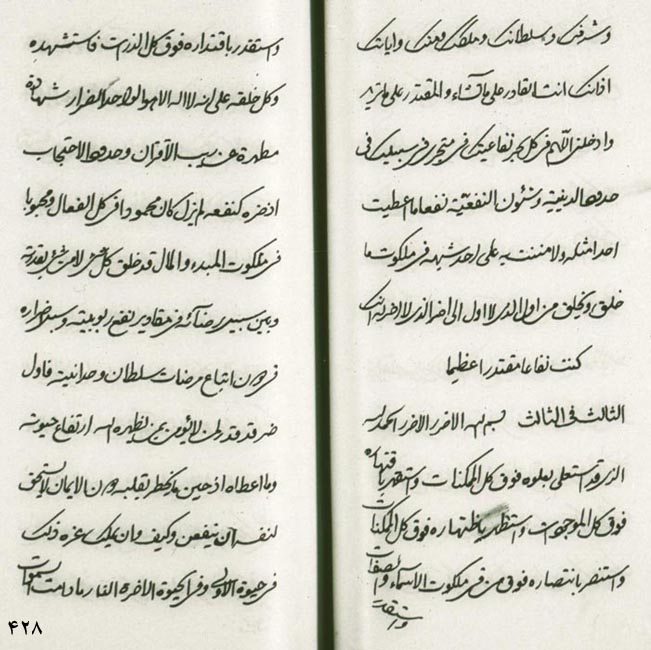 وشرفك وسلطانك وملكك وآياتك
اذانك انت القادر على ماتشاء والمقتدر على ماتريد
وادخلني اللهم في كل بحر نفاعيتك في متجري في سبيلك في
حدود الدينية وشئون النفعية نفعاما اعطيت
احد امثله ولا مننت به على احد شبهه في ملكوت ما
خلق ويخلق من اول الذي لا اول الى اخر الذي لا اخر له انك
كنت نفاعا مقتدرا عظيما
الثالث في الثالث بسم الله الاضر الاضر الحمد لله
الذي قد استعلى بعلوه فوق كل الممكنات واستقهر باقتهاره
فوق كل الموجودات واستظهر باظتهاره فوق كل الكائنات
واستنصر بانتصاره فوق من في ملكوت الاسماء والصفات
واستقدر
واستقدر باقتداره فوق كل الذرات فاستشهده
وكل خلقه على انه لا اله الا هو الواحد الضرار شهادة
مطهرة عن ريب الاقران وحدود الاحتجاب
اذ ضره كنفعه لم يزل كان محمودا في كل الفعال ومحبوبا
في ملكوت المبدء والمال قد خلق كل شئ لامن شئ بقدرته
وبين سبيل رضائه في مقادير نفع ربوبيته وسبل اضراره
في دون اتباع مرضات سلطان وحدانيته فاول
ضر قد قدر لمن لا يؤمن بمن يظهره الله ارتفاع حيوته
وما اعطاه اذ حين ما يخطر بقلبه دون الايمان لايستحق
لنفسه ان يتنفس وكيف وان يملك غيره ذلك
في حيوة الاولى وفي الحيوة الاخرة النار مادامت السموات
۴۲۸